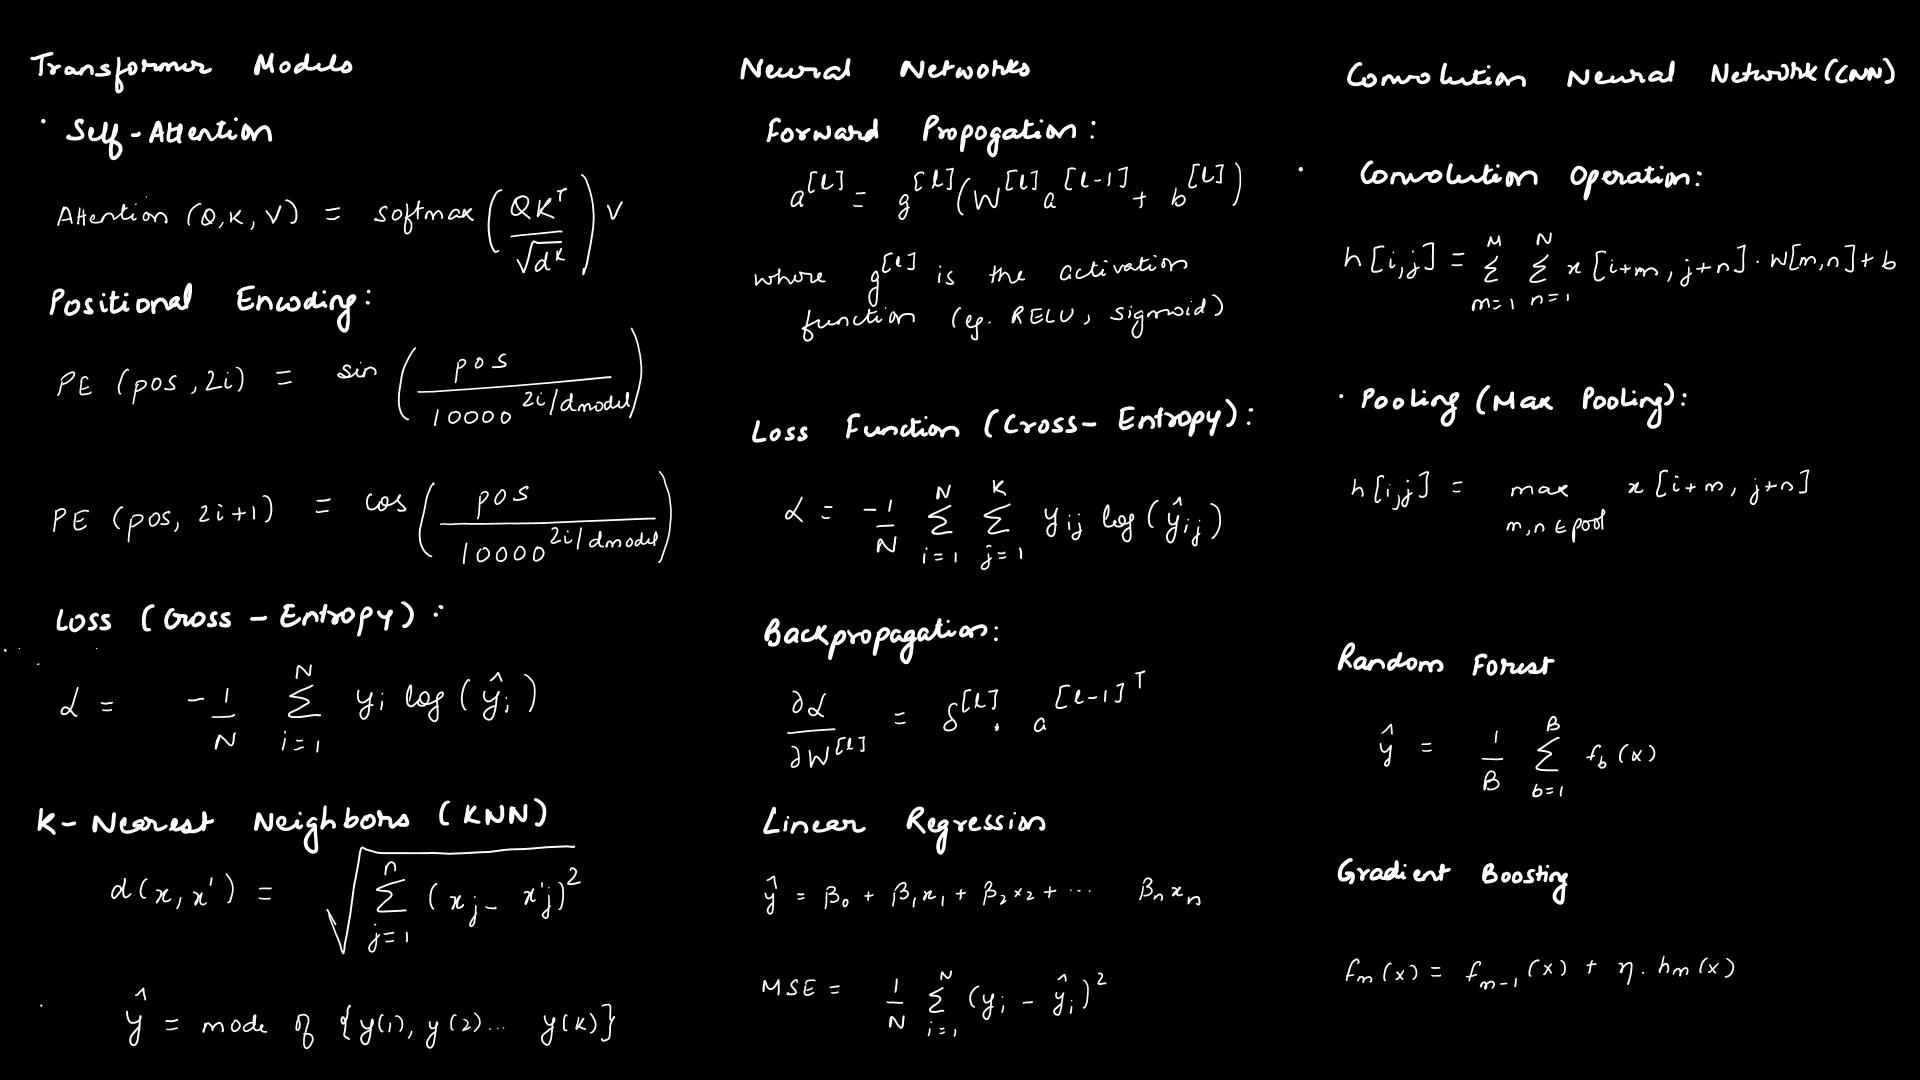 Transformer Models
· Self-Attention
Attention (Q, K, V) = softmax (QKᵀ / √dᵏ) V
Positional Encoding:
PE (pos, 2i) = sin (pos / 10000^(2i/dmodel))
PE (pos, 2i+1) = cos (pos / 10000^(2i/dmodel))
Loss (Cross - Entropy):
L = -1/N Σ_{i=1}^{N} yᵢ log (ŷᵢ)
K- Nearest Neighbors (KNN)
d(x, x') = √(Σ_{j=1}^{n} (x_j - x'_j)²)
ŷ = mode of {y(1), y(2)... y(K)}
Neural Networks
Forward Propogation:
a^[l] = g^[l] (W^[l] a^[l-1] + b^[l])
where g^[l] is the activation
function (eg. RELU, sigmoid)
Loss Function (Cross- Entropy):
L = -1/N Σ_{i=1}^{N} Σ_{j=1}^{K} y_ij log (ŷ_ij)
Backpropagation:
∂L/∂W^[l] = δ^[l] . a^[l-1]ᵀ
Linear Regression
ŷ = β₀ + β₁x₁ + β₂x₂ + ... βₙxₙ
MSE = 1/N Σ_{i=1}^{N} (yᵢ - ŷᵢ)²
Convolution Neural Network (CNN)
· Convolution Operation:
h[i,j] = Σ_{m=1}^{M} Σ_{n=1}^{N} x[i+m, j+n] · W[m,n] + b
· Pooling (Max Pooling):
h[i,j] = max_{m,n ∈ pool} x[i+m, j+n]
Random Forest
ŷ = 1/B Σ_{b=1}^{B} f_b (x)
Gradient Boosting
f_m (x) = f_{m-1} (x) + η . h_m (x)